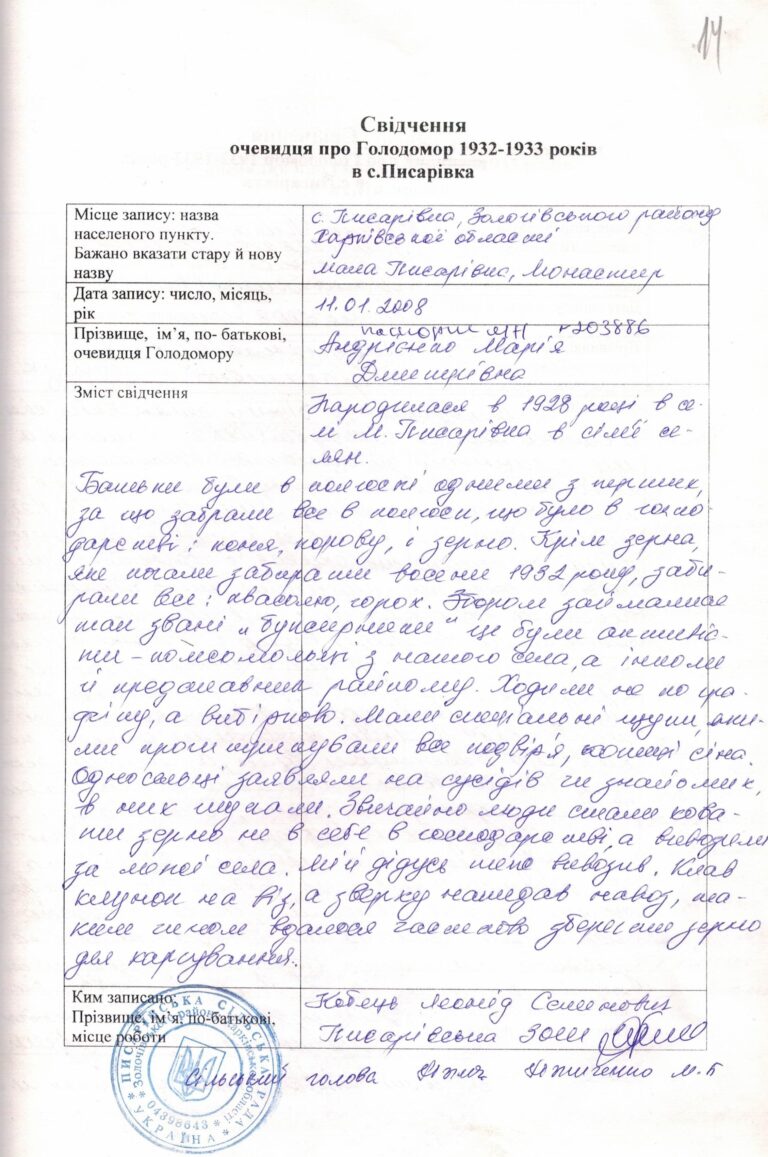 14
Свідчення
очевидця про Голодомор 1932-1933 років
в с.Писарівка
Місце запису: назва
населеного пункту.
Бажано вказати стару й нову
назву
с. Писарівка, Золочівського району
Харківської області
мала Писарівка, Монастир
Дата запису: число, місяць,
рік
11.01.2008
Прізвище, ім’я, по- батькові,
очевидця Голодомору
паспорт МН 203886
Андрієнко Марія
Дмитрівна
Зміст свідчення
Народилася в 1928 році в се-
лі М. Писарівка в сім'ї се-
лян.
Батьки були в колгоспі одними з перших,
за що забрали все в колгосп, що було в госпо-
дарстві: коня, корову, і зерно. Крім зерна,
яке почали забирати восени 1932 року, заби-
рали все: квасолю, горох. Збором займалися
так звані „буксирники" це були активіс-
ти - комсомольці з нашого села, а інколи
й представник райкому. Ходили не по гра-
фіку, а вибірково. Мали спеціальні щупи, яки-
ми проштрикували все подвір'я, копиці сіна.
Односельці заявляли на сусідів чи знайомих,
в них шукали. Звичайно люди стали хова-
ти зерно не в себе в господарстві, а вивозили
за межі села. Мій дідусь теж вивозив. Клав
клунок на віз, а зверху накидав навоз, та-
ким чином вдалося частково зберегти зерно
для харчування.
Ким записано:
Прізвище, ім’я, по-батькові,
місце роботи
Кобець Леонід Семенович
Писарівська ЗОШ
Сільський голова М. Б
ПИСАРІВСЬКА СІЛЬСЬКА РАДА
Золочівського району Харківської області
04396643
УКРАЇНА